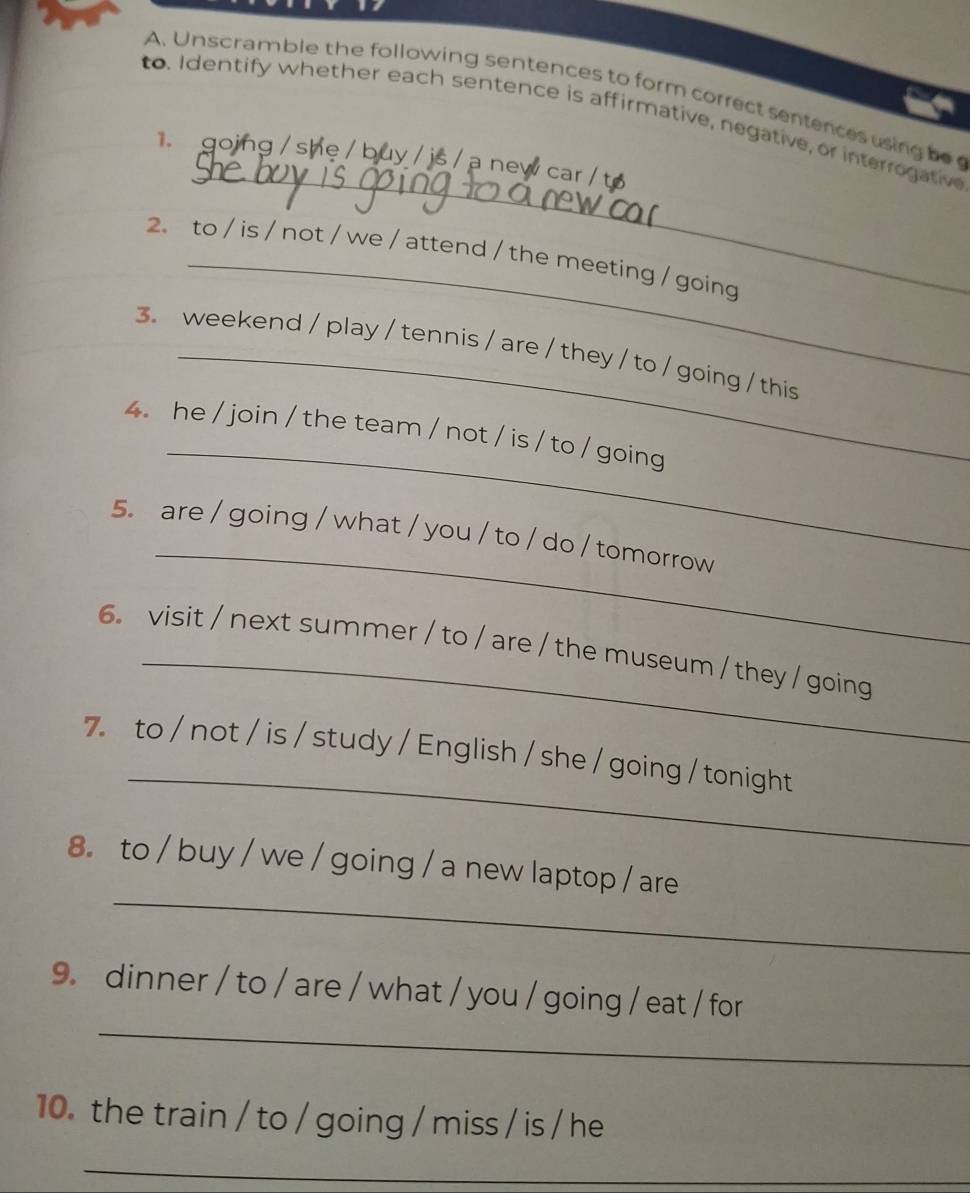 A. Unscramble the following sentences to form correct sentences using be g
to. Identify whether each sentence is affirmative, negative, or interrogative.
1. going / she / buy / is / a new car / to
She buy is going to a new car
2. to / is / not / we / attend / the meeting / going
3. weekend / play / tennis / are / they / to / going / this
4. he / join / the team / not / is / to / going
5. are / going / what / you / to / do / tomorrow
6. visit / next summer / to / are / the museum / they / going
7. to / not / is / study / English / she / going / tonight
8. to / buy / we / going / a new laptop / are
9. dinner / to / are / what / you / going / eat / for
10. the train / to / going / miss / is / he